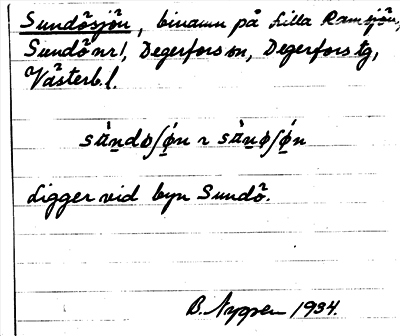 Sundösjön, binamn på Lilla Ramsjön,
Sundö nr 1, Degerfors sn, Degerfors tg,
Västerb. l.
sàndøʃǿn ~ sànøʃǿn
Ligger vid byn Sundö.
B. Nygren 1934.